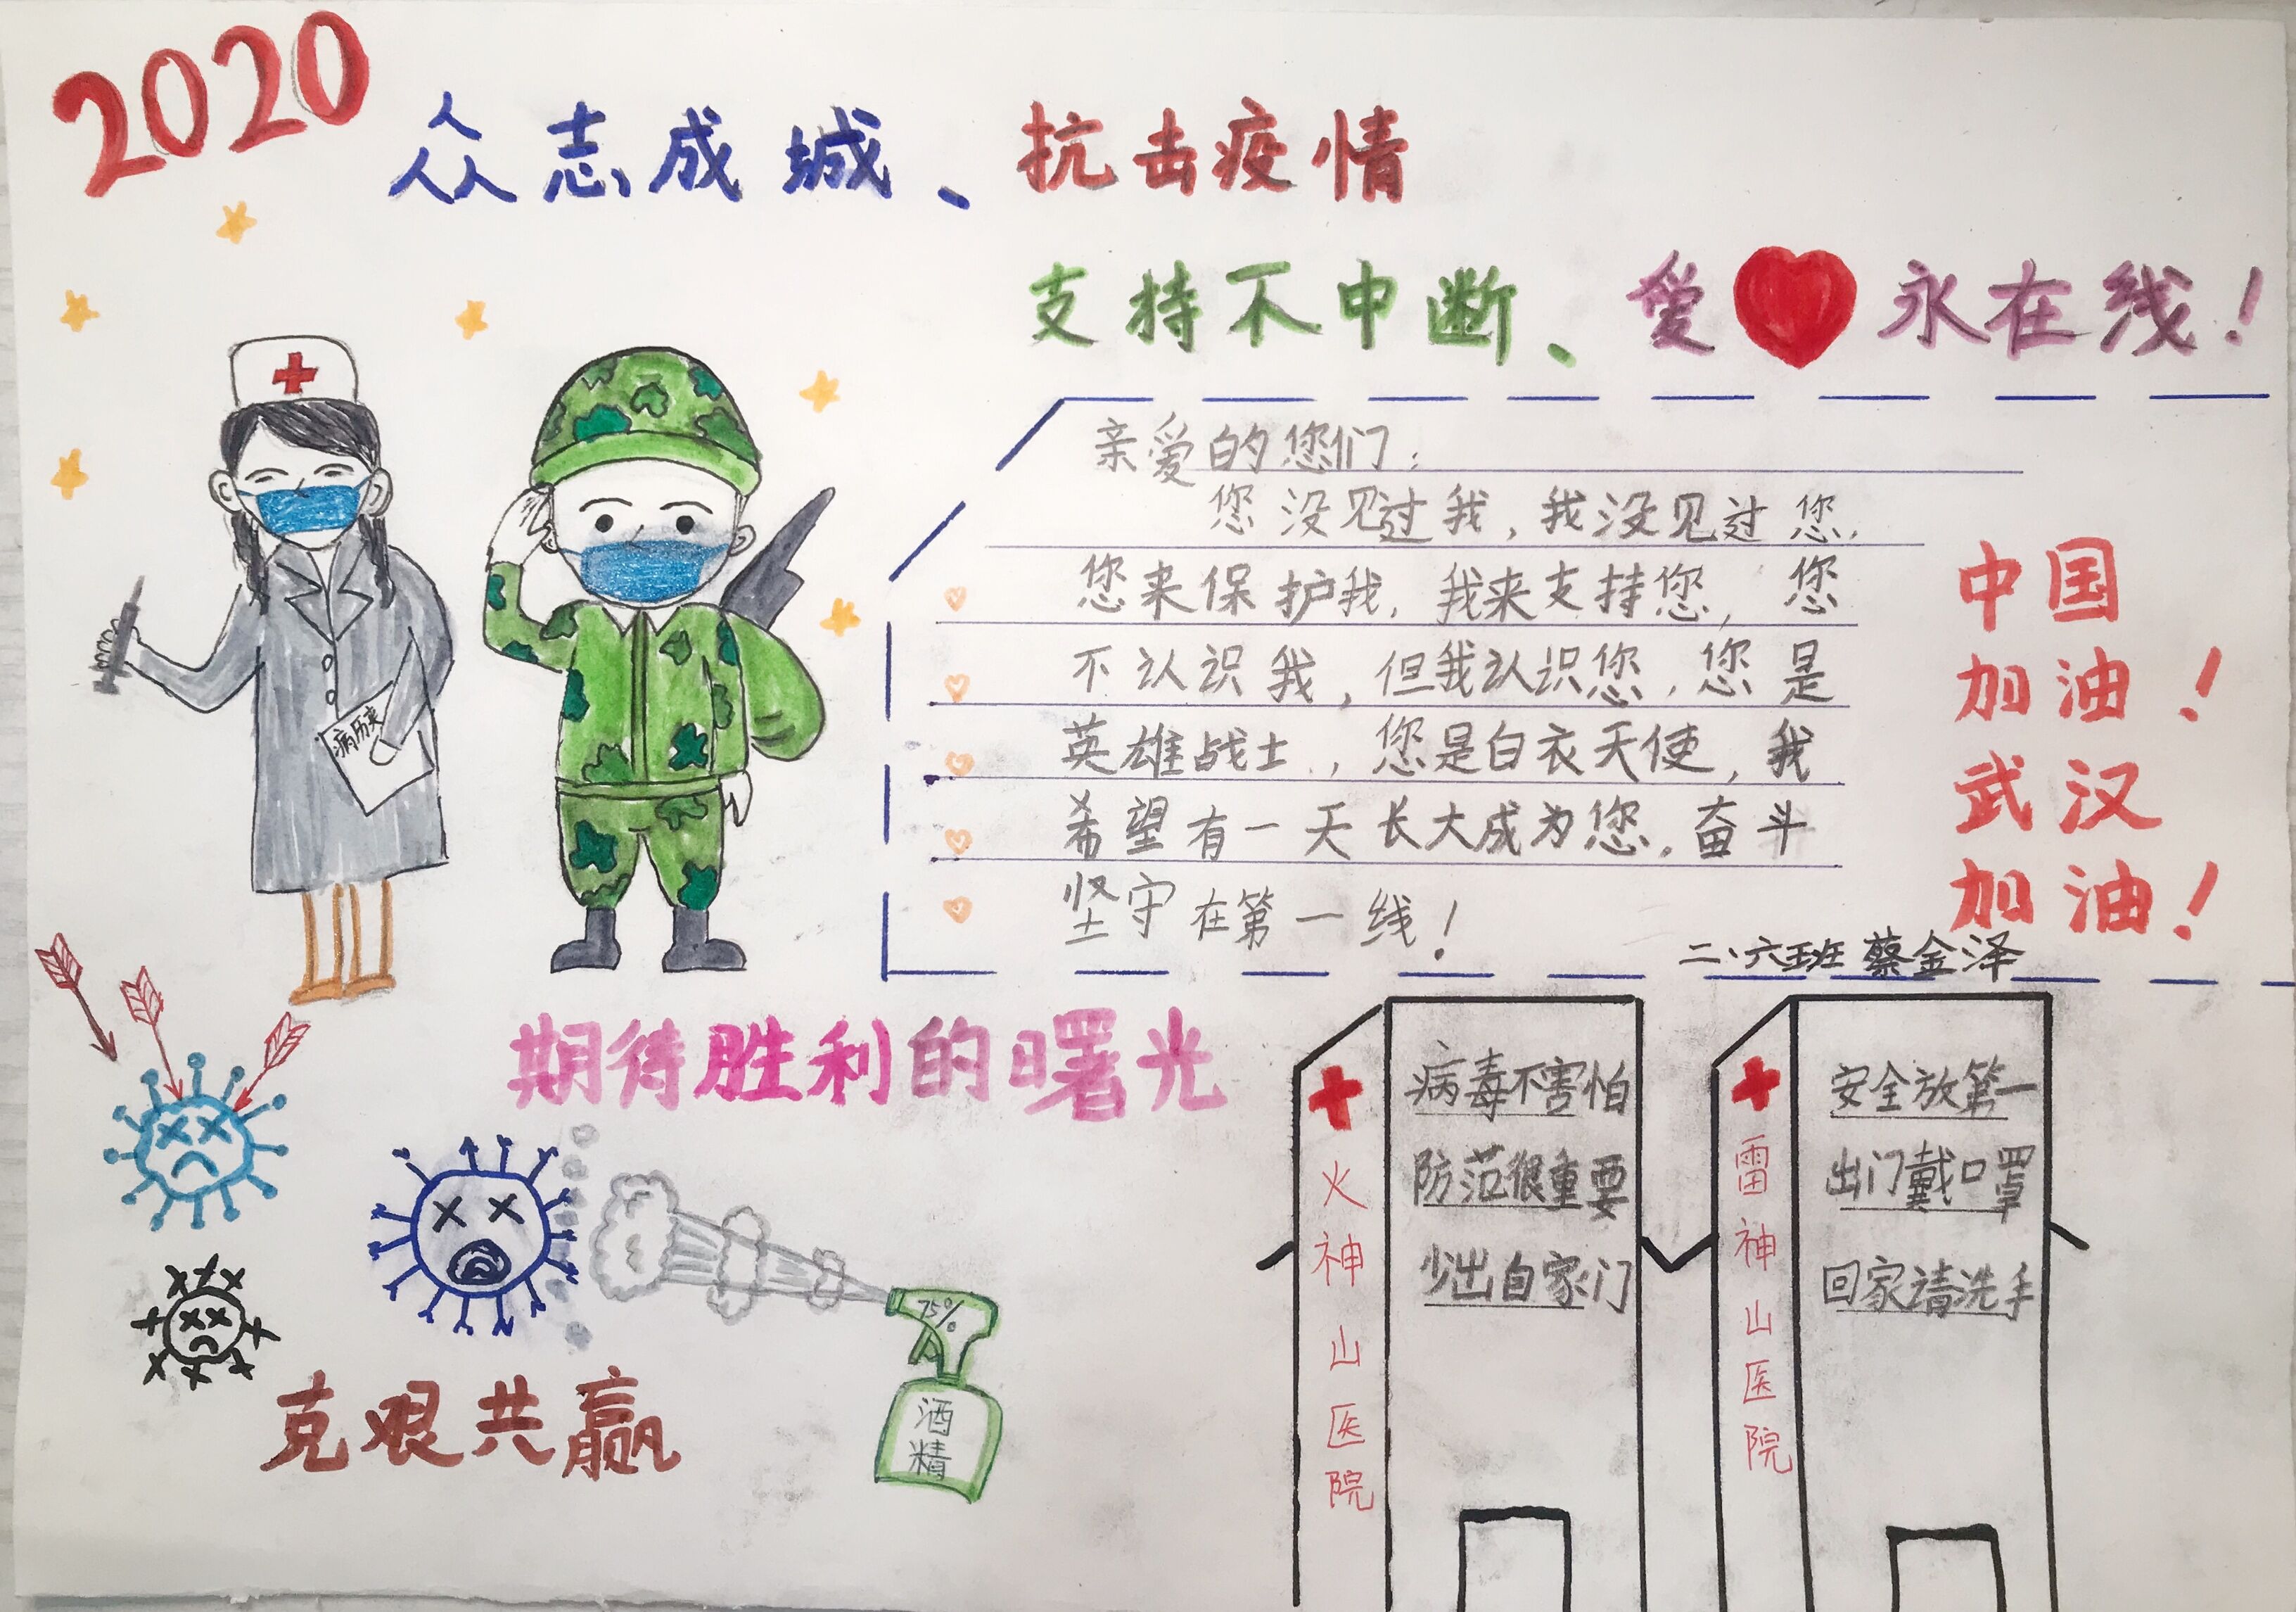 2020
众志成城、抗击疫情
支持不中断、爱永在线!
亲爱的您们:
您没见过我,我没见过您.
您来保护我,我来支持您,您
不认识我,但我认识您.您是
英雄战士,您是白衣天使,我
希望有一天长大成为您.奋斗
坚守在第一线!
中国
加油!
武汉
加油!
二、六班 蔡金泽
病历夹
期待胜利的曙光
75%
酒
精
克艰共赢
火神山医院
病毒不害怕
防范很重要
少出自家门
雷神山医院
安全放第一
出门戴口罩
回家请洗手